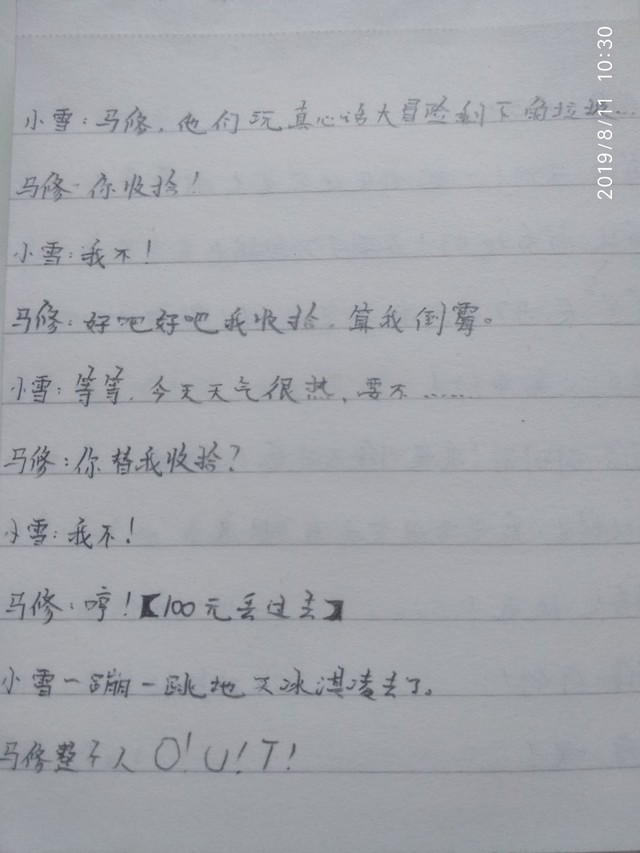 小雪:马修,他们玩真心话大冒险剩下的垃圾……
马修:你收拾!
小雪:我不!
马修:好吧好吧我收拾,算我倒霉。
小雪:等等,今天天气很热,要不……
马修:你替我收拾?
小雪:我不!
马修:哼!【100元丢过去】
小雪一蹦一跳地买冰淇凌去了。
马修整个人O!U!T!
2019/8/11 10:30